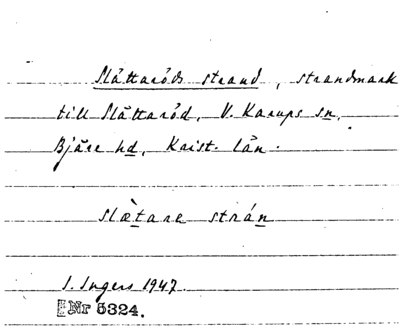 Slättaröds strand, strandmark
till Slättaröd, V. Karups sn,
Bjäre hd, Krist. län.
slætare strán
I. Ingers 1947.
Nr 5324.